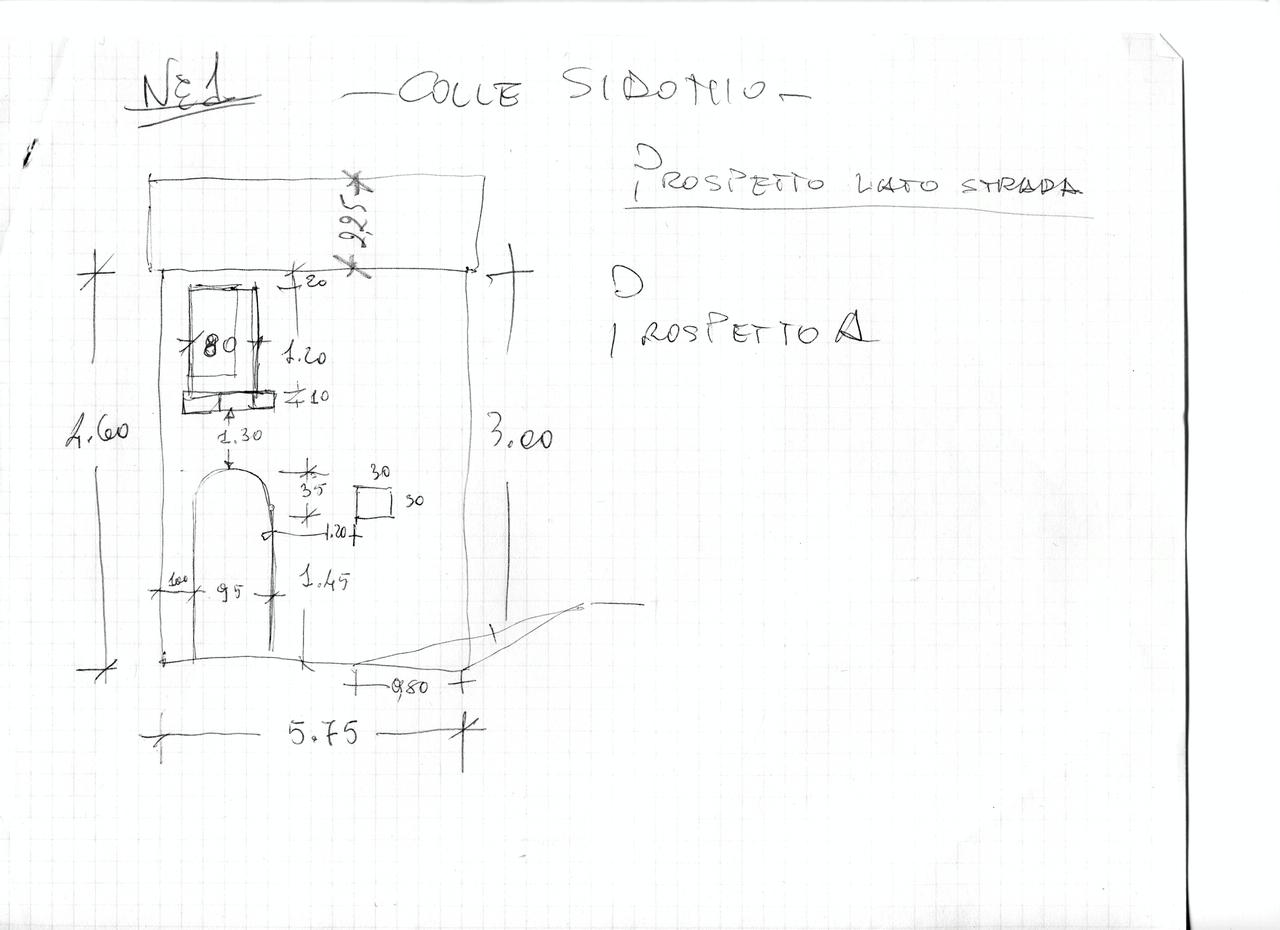 NE1
— COLLE SIDONIO —
PROSPETTO LATO STRADA
PROSPETTO A
2,25
20
80
1.20
10
4.60
1.30
3.00
35
30
30
1.20
100
95
1.45
0,80
5.75